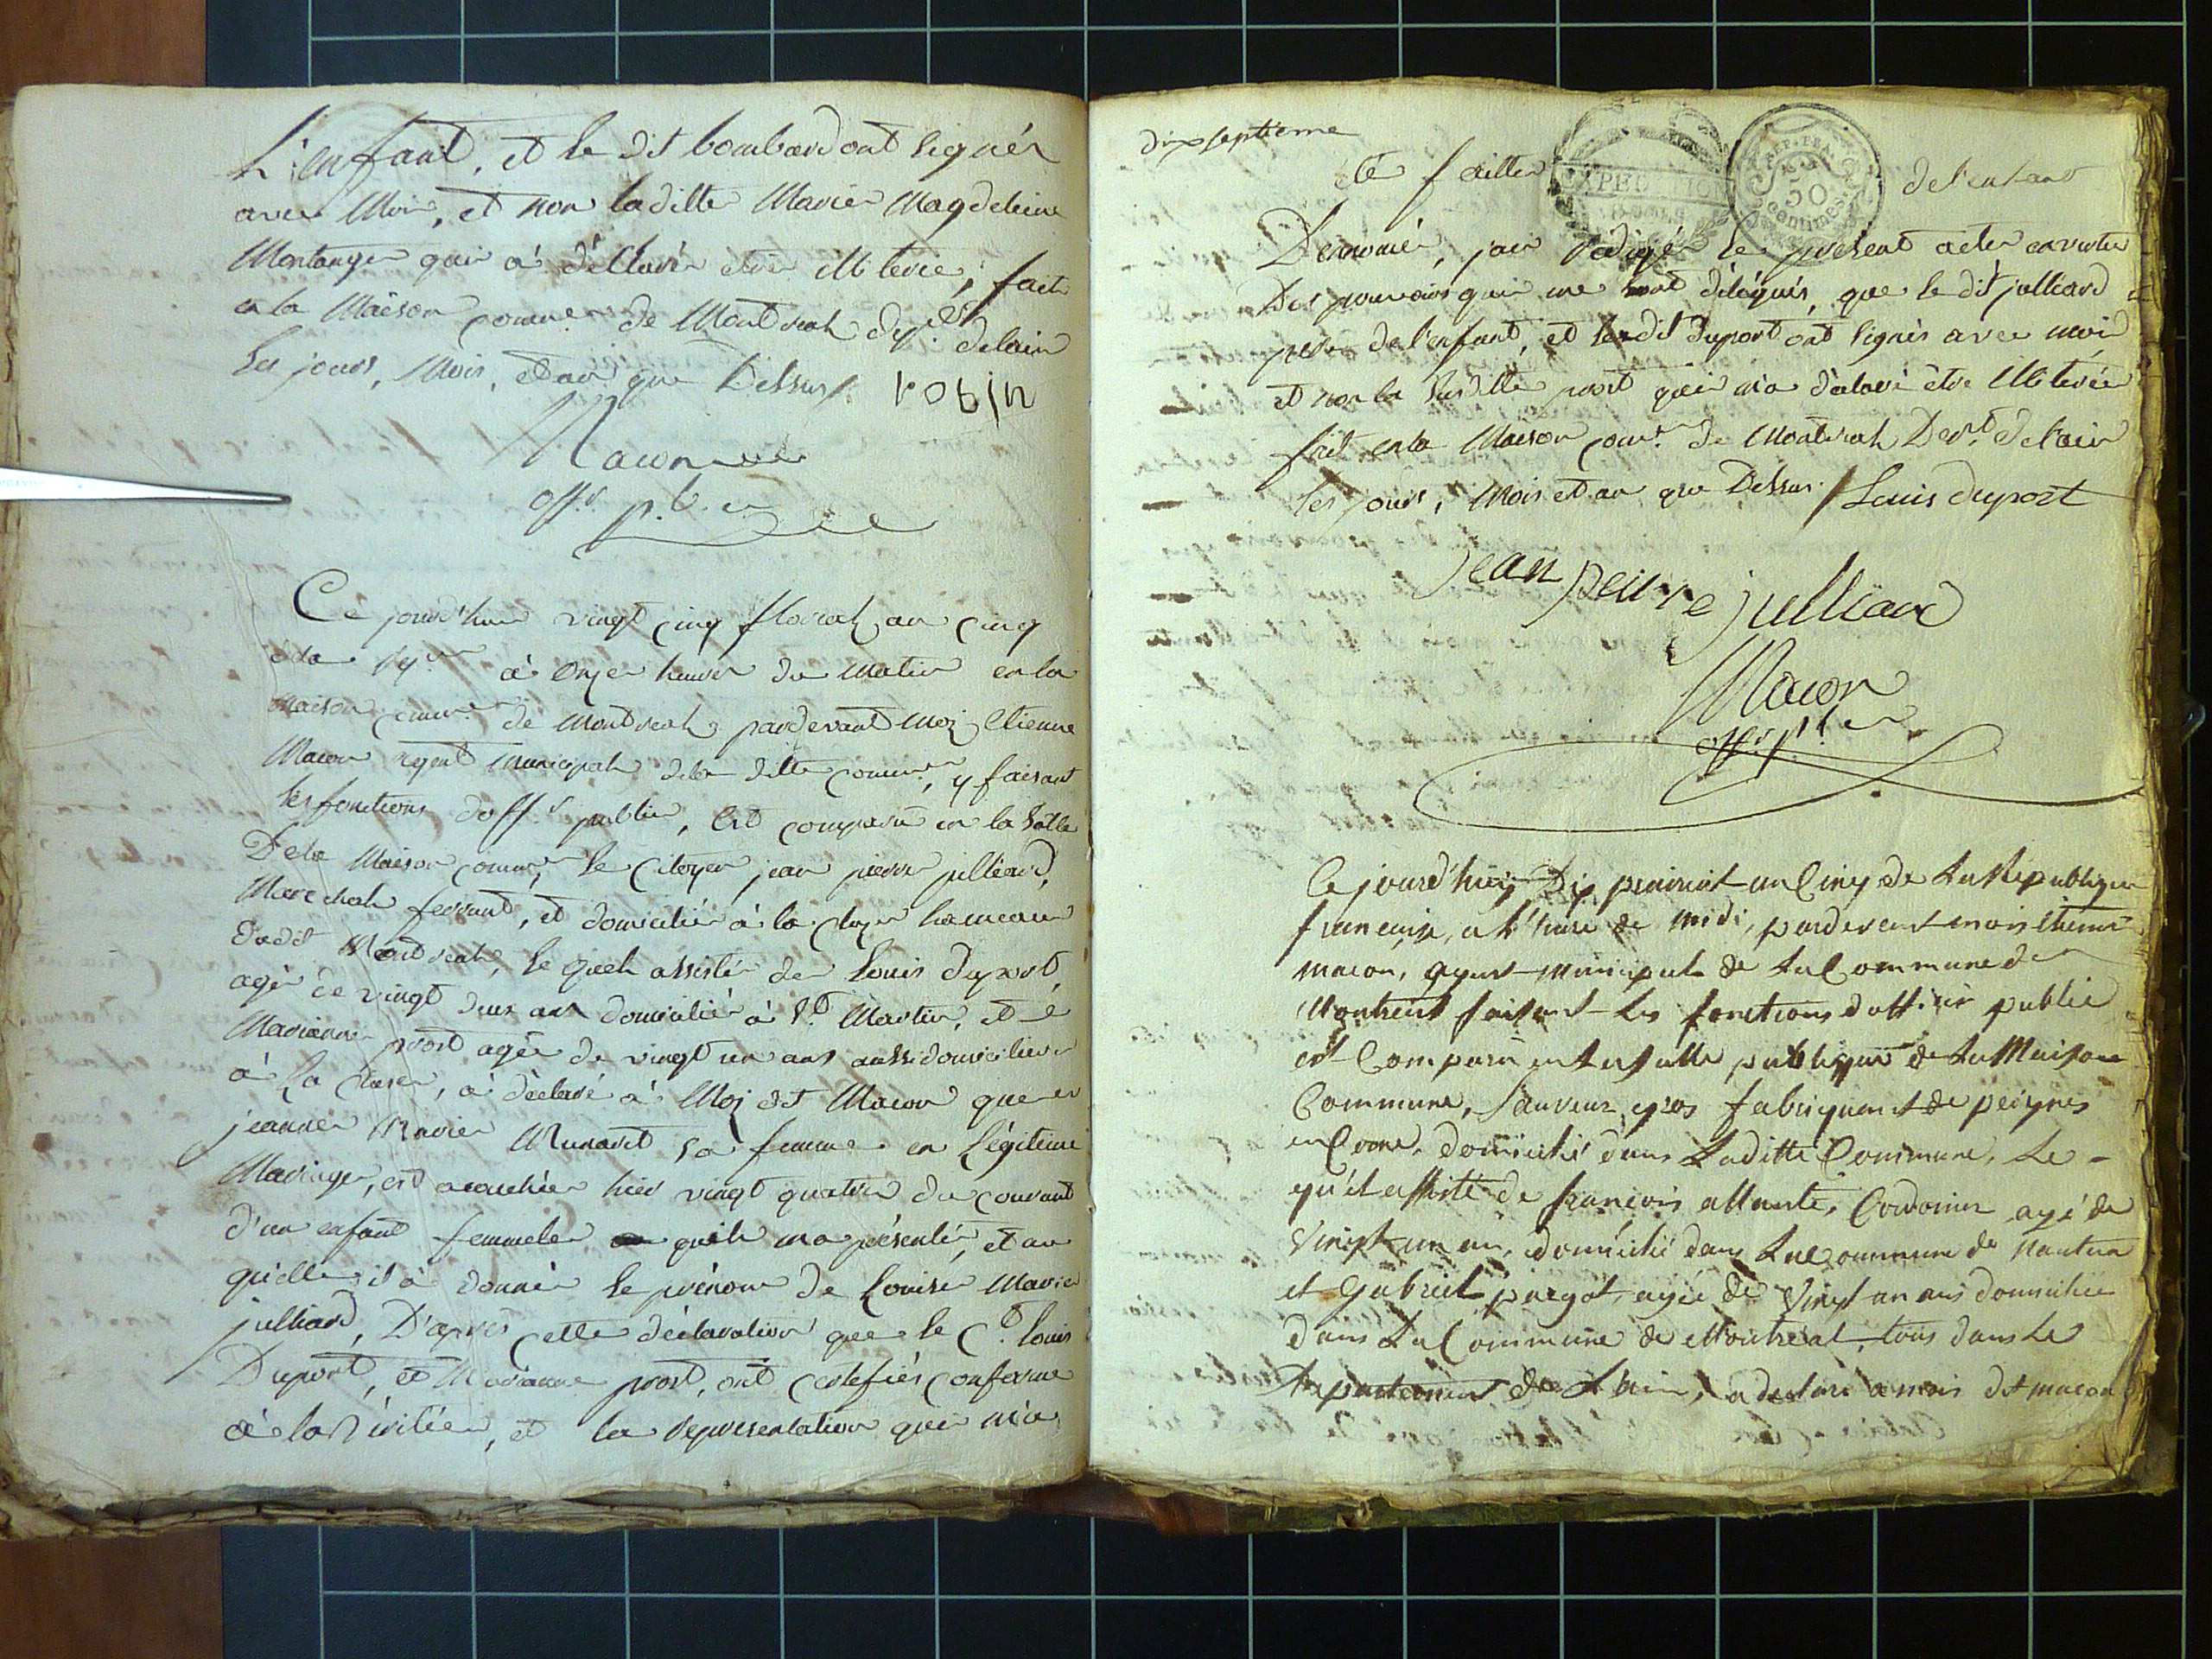 L'enfant, et le dit bombard ont signés
avec Moi, et non laditte Marie Magdeleine
Montange qui à déClaré etre illiterée, fait
en la Maison comune de Montreal depmt delain
les jours, Mois, et an que Dessus /. robin
Macon
offr. p.b.
Ce jourd'hui vingt cinq floreal an cinq
de la Rque à onze heures du Matin en la
Maison comune de Montreal pardevant Moi Etienne
Macon agent Municipal de la ditte comune, y faisant
les fonctions d'offr public, Est comparu en la Salle
De la Maison comune, le Citoyen jean pierre jülliard,
Marechal ferrant, et domicilié à la cluze hameau
dudit Montreal, le quel assisté de Louis duport,
agé de vingt deux ans domicilié à St Martin, et de
Marianne prost agée de vingt un ans aussi domiciliée
à La cluse, à déclaré à Moi dit Macon que
jeanne Marie Munaret sa femme en Légitime
Mariage, est acouchée hier vingt quatre du courant
d'un enfant femmele qu'il ma présenté, et au
quelle il à donné le prénom de Louise Marie
julliard, D'après cette déclaration que le Ct. Louis
Duport, et Marianne prost, ont certefiés conforme
à la Véritée, et la representation qui m'a
dix septieme
été faitte
EXPEDITION
REP. FRA.
50
centimes
de l'enfant
Denomé, j'ai rédigé le présent acte en vertu
Des pouvoirs qui me sont délégués, que le dit julliard
pere de l'enfant, et ledit Duport ont signés avec moi
et non la Susditte prost qui m'a déclaré être illiterée
fait en la Maison comne de Montreal Dept. de l'ain
les jours, Mois et an que Dessus. / Louis duport
jean peiire julliard
Macon
offr. p.b.
Ce jourd'huij Dix prairial an Cinq de La Republique
francaise, a l'hure de midi, pardevant mois Etienne
macon, agent municipal de La Commune de
Montreal faisant Les fonctions doffisier public
est Comparu en La salle publique de La Maison
Commune, Sauveur gros fabriquant de peignes
en Corne, domicilié dans Laditte Commune, Le-
qu'el assisté de francois allante, Cordonier agé de
Vingt un an, domicilié dans La Commune de Nantua
et Gabriel purgot, agée de Vingt un ans domiciliée
dans La Commune de Montreal, tous dans Le
Departement de L'ain, a declaré a mois dit macon